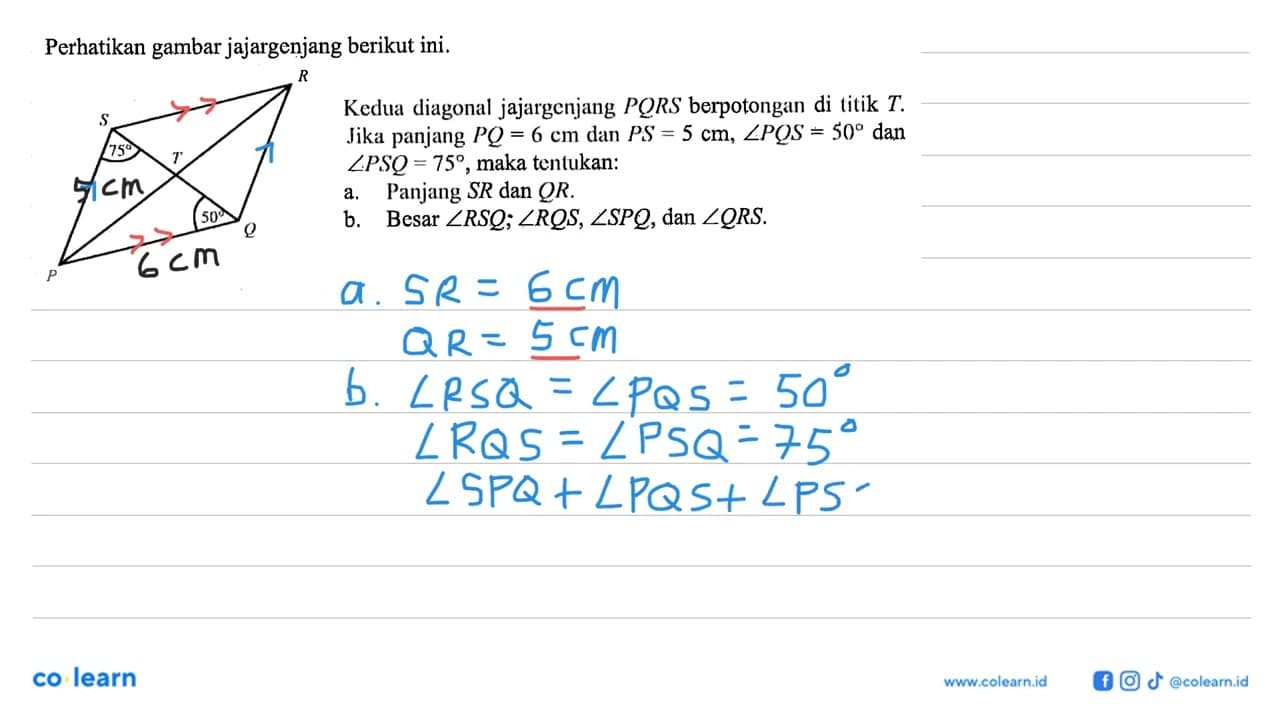 Perhatikan gambar jajargenjang berikut ini.
R
S
75°
T
5 cm
50°
Q
6 cm
P
Kedua diagonal jajargenjang PQRS berpotongan di titik T.
Jika panjang PQ = 6 cm dan PS = 5 cm, ∠PQS = 50° dan
∠PSQ = 75°, maka tentukan:
a. Panjang SR dan QR.
b. Besar ∠RSQ; ∠RQS, ∠SPQ, dan ∠QRS.
a. SR = 6 cm
QR = 5 cm
b. ∠RSQ = ∠PQS = 50°
∠RQS = ∠PSQ = 75°
∠SPQ + ∠PQS + ∠PS
co learn
www.colearn.id
@colearn.id